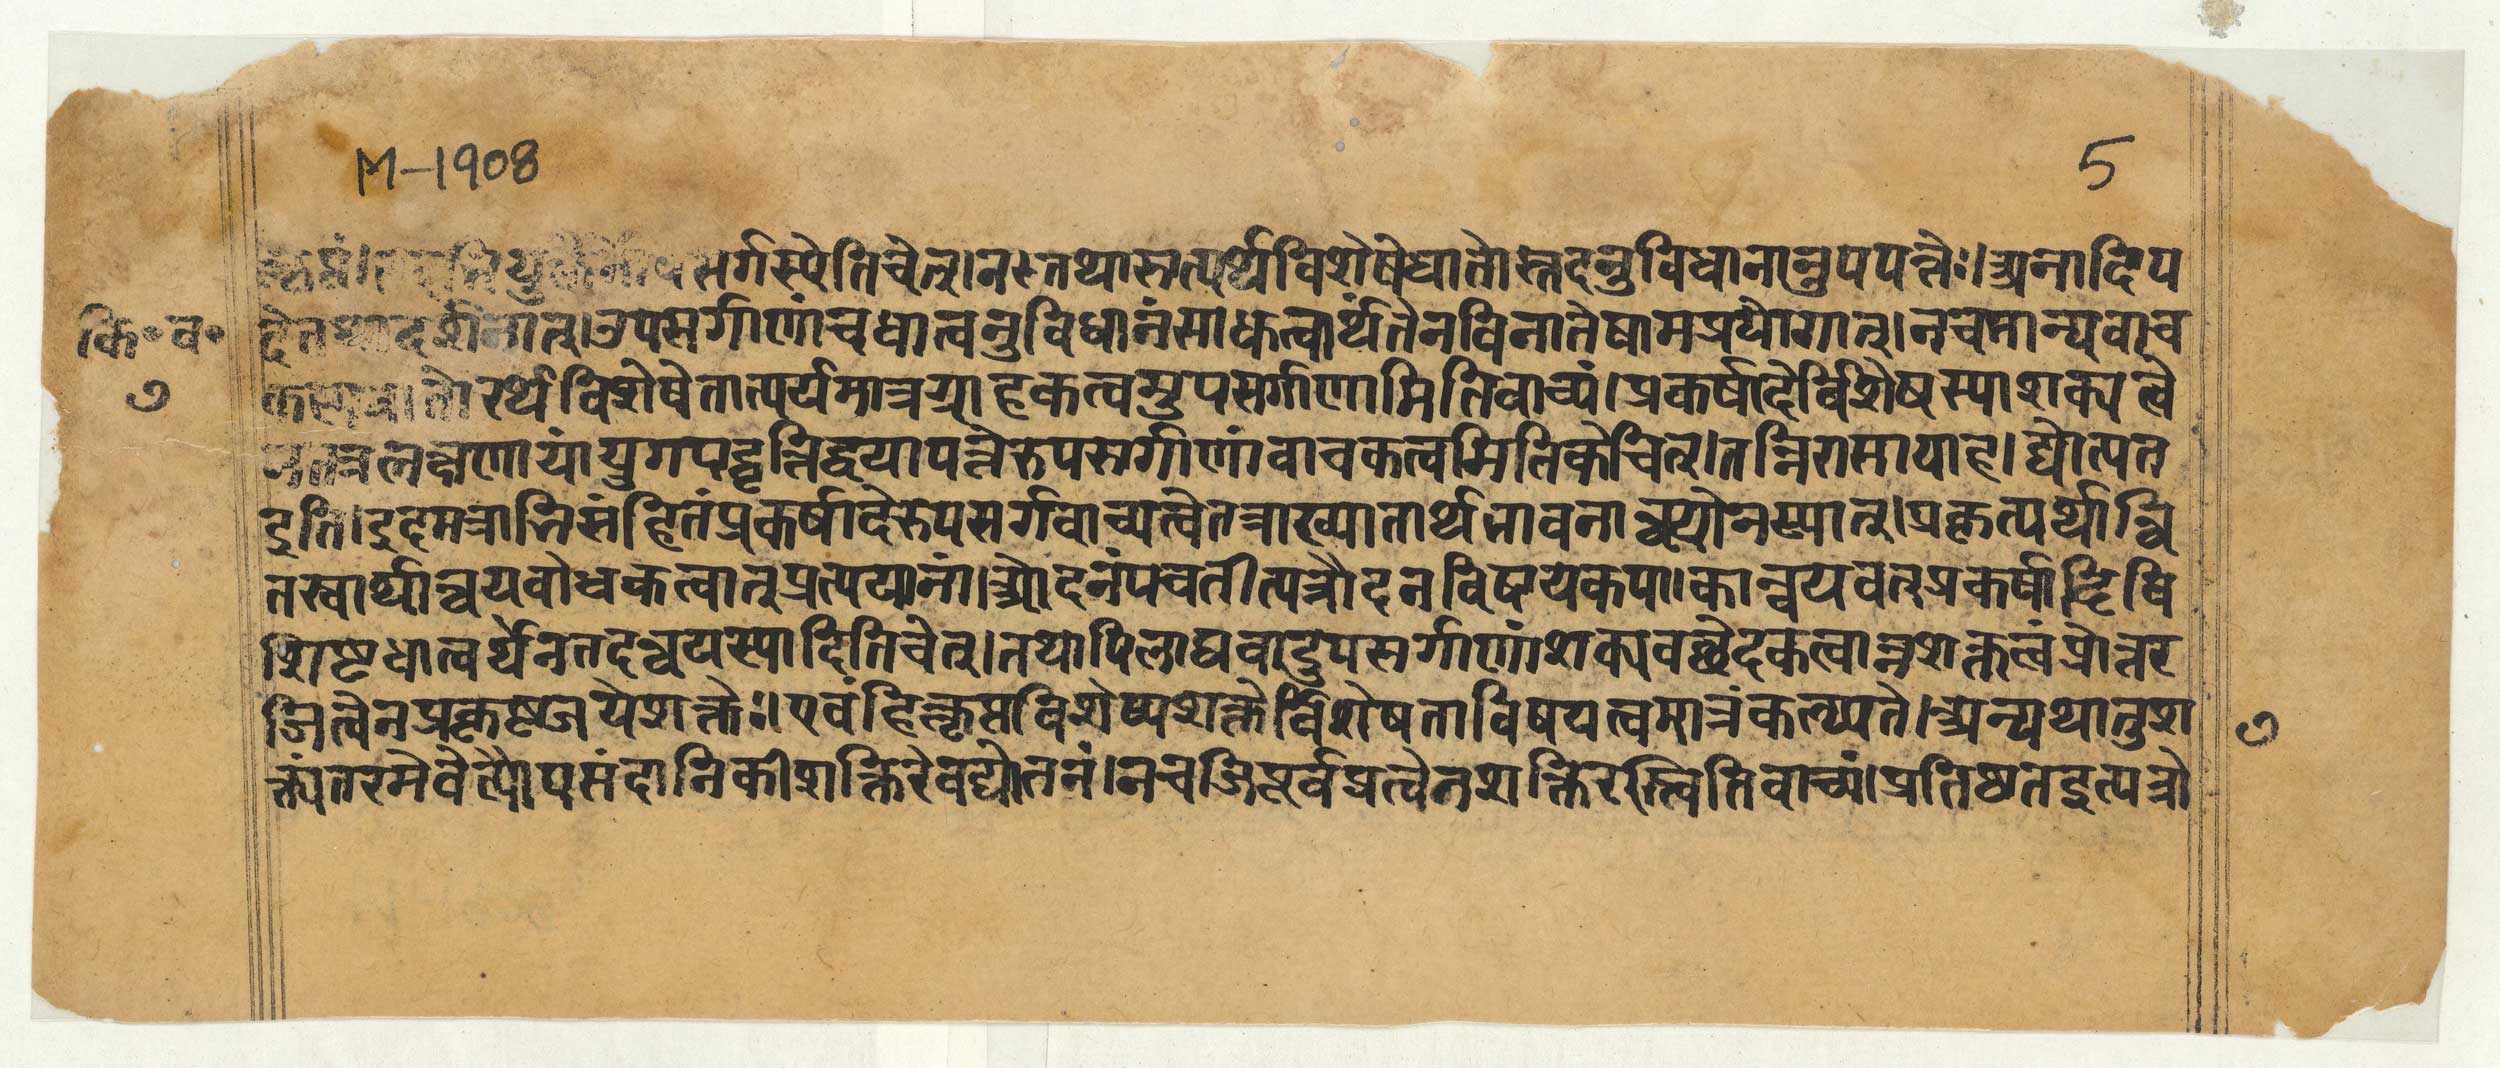 M-1908
5
सर्गस्येति चेत् । न । तथा सत्यर्थविशेषे धातोस्तदनुविधानानुपपत्तेः । अनादिप
कि॰ व॰
दर्शनात् । उपसर्गाणां च धात्वनुविधानं साधकत्वार्थं तेन विना तेषामप्रयोगात् । न च मान्यवाच
७
रर्थविशेषे तात्पर्यमात्रग्राहकत्वमुपसर्गाणामिति वाच्यं । प्रकर्षादेर्विशेषस्याशक्यत्वे
लक्षणायां युगपद्वृत्तिद्वयापत्तेरुपसर्गाणां वाचकत्वमिति केचित् । तन्निरासायाह । द्योत्यत
इति । इदमत्राभिसंहितं प्रकर्षादेरुपसर्गवाच्यत्वे तत्राख्यातार्थभावनान्वयो न स्यात् । प्रकृत्यर्थान्वि
तस्वार्थान्वयबोधकत्वात् प्रत्ययानां । ओदनं पचतीत्यत्रौदनविषयकपाकान्वयवत् प्रकर्षादिवि
शिष्टधात्वर्थेन तदन्वयस्यादिति चेत् । तथापि लाघवादुपसर्गाणां शक्यवच्छेदकत्वान्नशक्तत्वं प्रोत्तर
जित्वेन प्रकृष्टजये शक्तेः । एवं हि कॢप्तविशेष्यशक्तेर्विशेषताविषयत्वमात्रं कल्प्यते । अन्यथा तु श
क्त्यंतरमेवेत्यौपसंदानिकी शक्तिरेव द्योतनं । न च जिपूर्वप्रत्वेन शक्तिरस्त्विति वाच्यं । प्रतिष्ठत इत्यत्रो
७